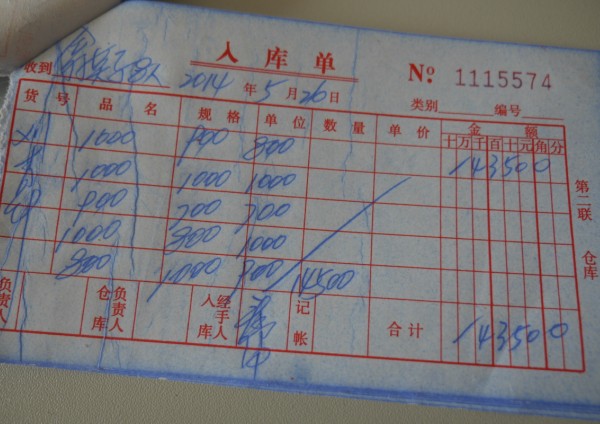 入库单
№ 1115574
收到 2014 年 5 月 26 日 类别 编号
货号 品名 规格 单位 数量 单价 金额
十万千百十元角分
1000 900 800 143500
1000 1000 1000
900 700 700
1000 800 1000
800 1000 900 14500
负责人 仓库负责人 入库经手人 记帐 合计 143500
第二联 仓库